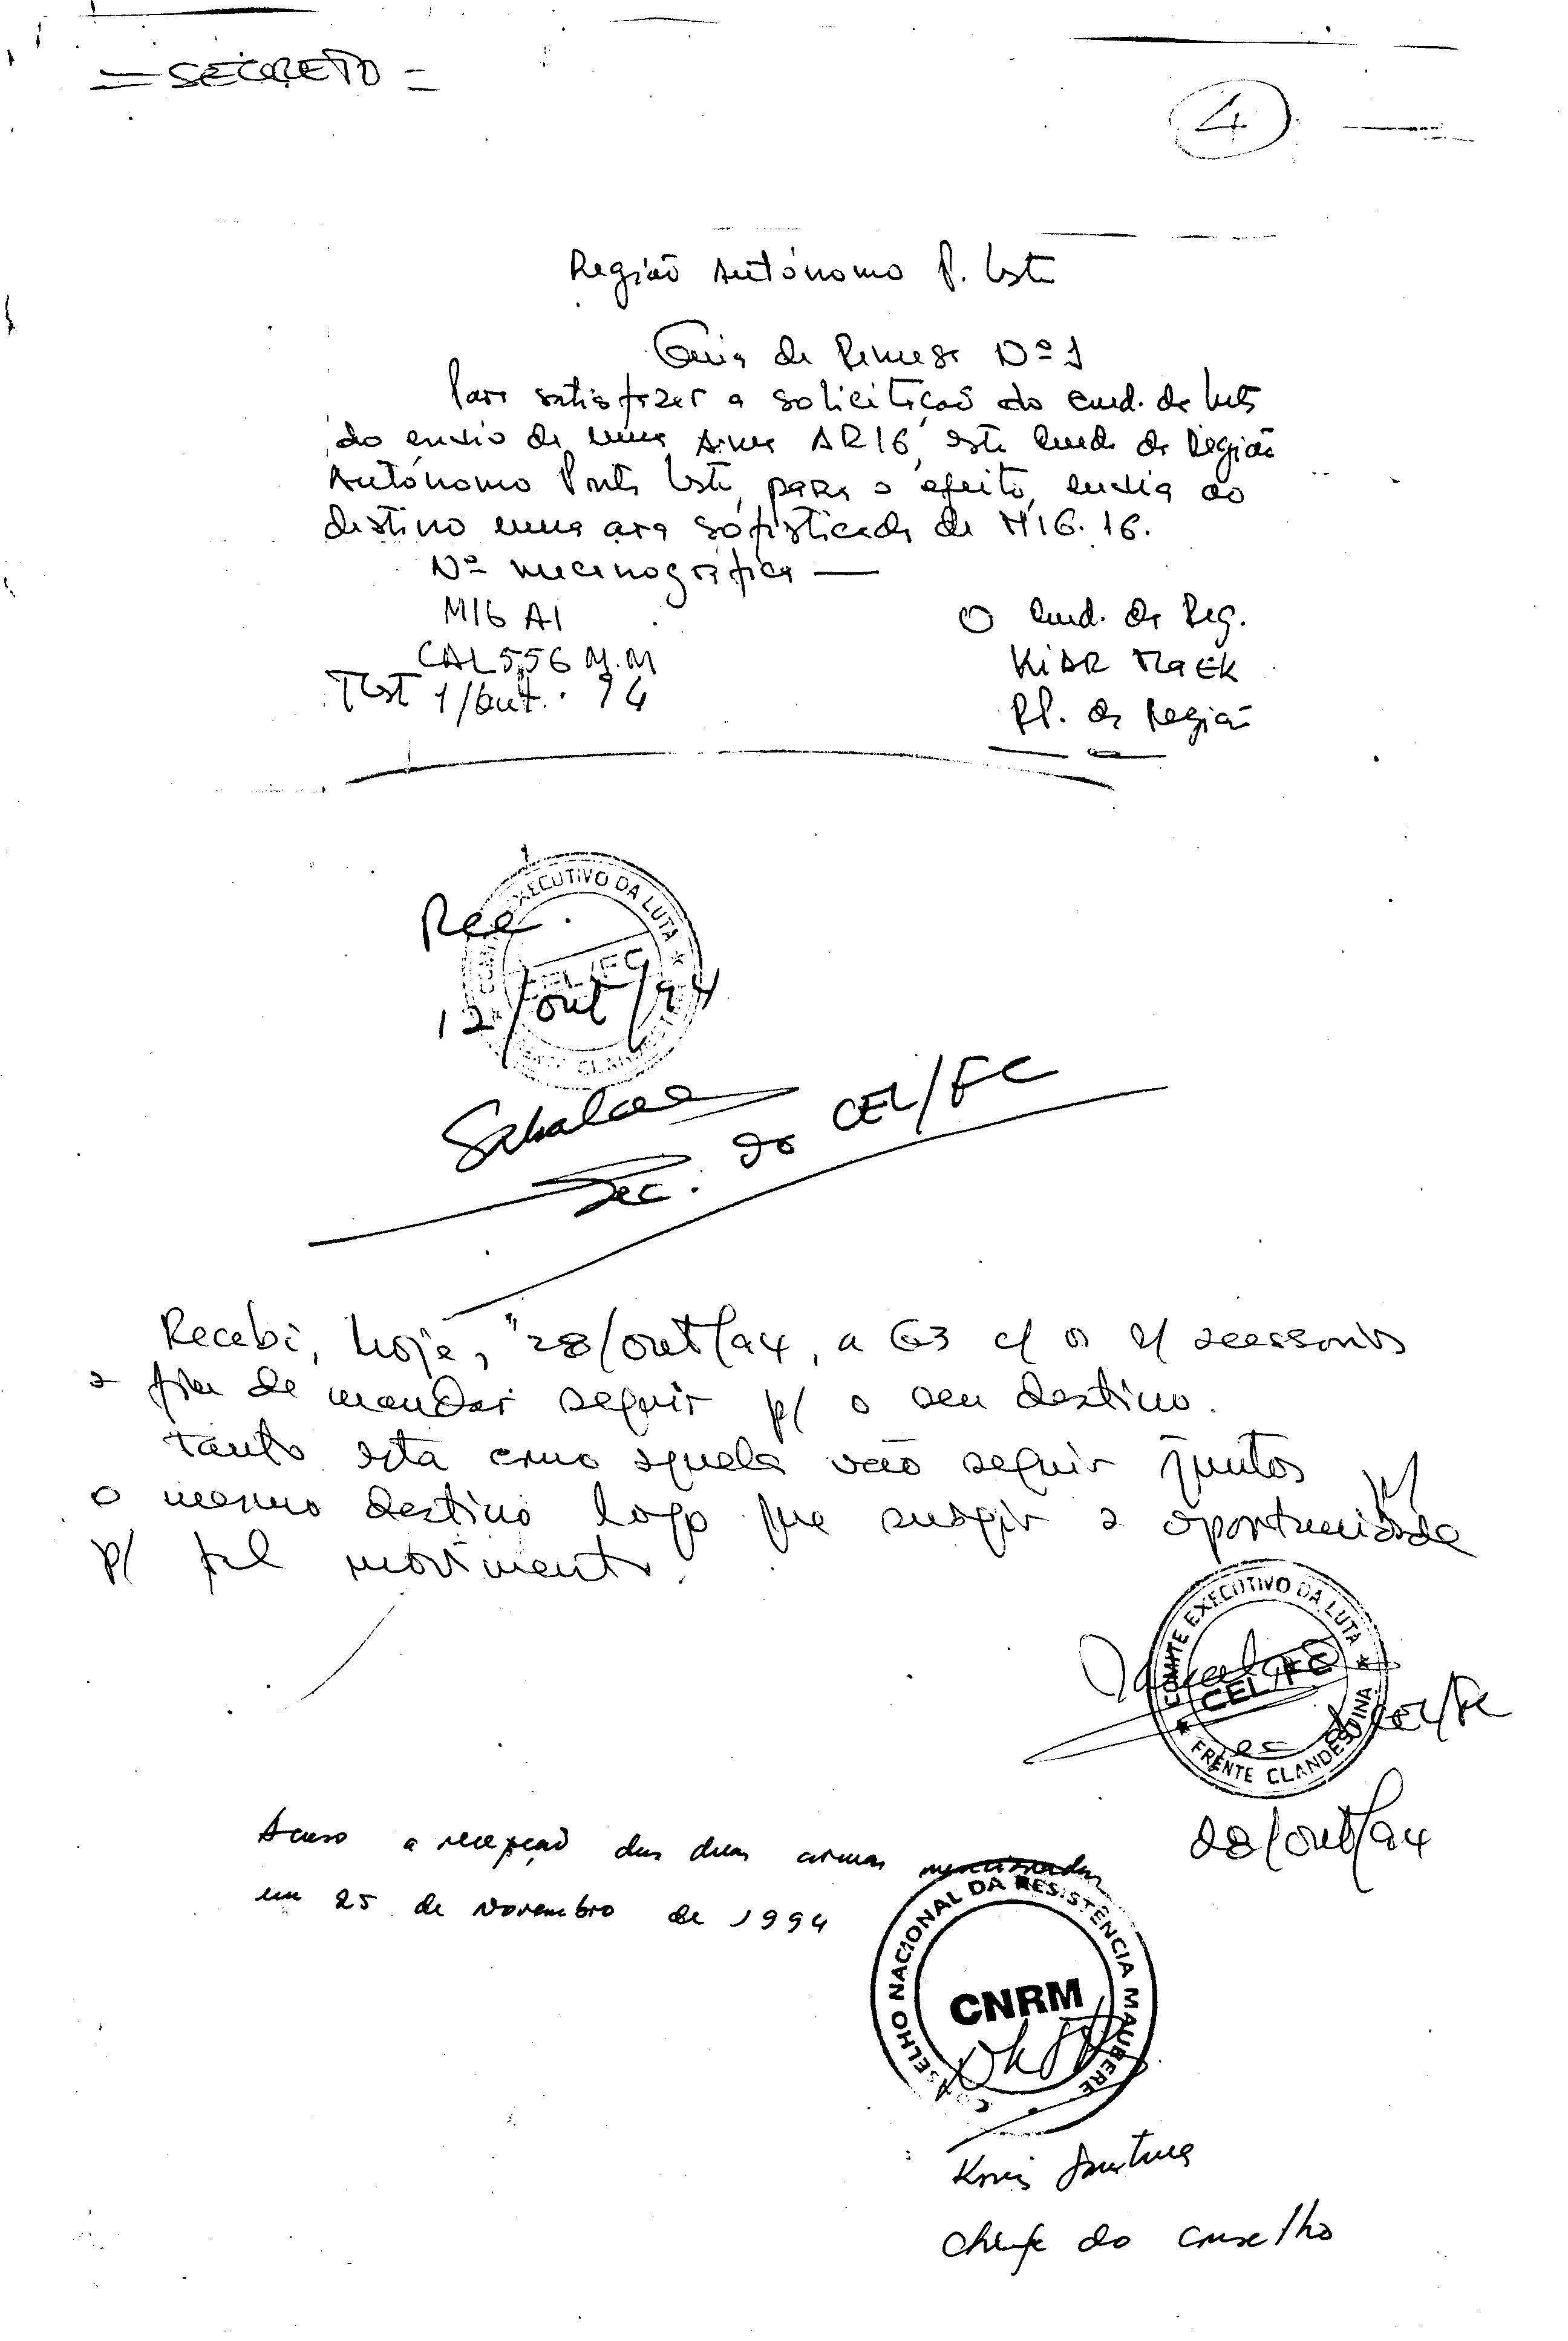 = SECRETO =
4
Região Autónomo P. Leste
Guia de Remessa Nº 1
Para satisfazer a solicitação do Cmd. da Luta
do envio de uma Arma AR16, este Cmdo da Região
Autónomo Ponta Leste, para o efeito, envia ao
destino uma ara sofisticada de M16.16.
Nº mecanográfica —
M16 A1
CAL 5,56 M.M
1/Out. 94
O Cmd. da Reg.
da Região
COMITE EXECUTIVO DA LUTA
CEL/FC
FRENTE CLANDESTINA
Rec.
12/out/94
Sabalae
Sec. do CEL/FC
Recebi, hoje, 28/out/94, a G3 c/ os s/ acessorios
a fim de mandar seguir p/ o seu destino.
Tanto esta como aquela vão seguir juntos p/
o mesmo destino logo que surgir a oportunidade
p/ tal movimento.
COMITE EXECUTIVO DA LUTA
CEL/FC
FRENTE CLANDESTINA
Sec do CEL/FC
28/out/94
Acuso a recepção das duas armas mencionadas
em 25 de Novembro de 1994
CONSELHO NACIONAL DA RESISTÊNCIA MAUBERE
CNRM
Konis Santana
Chefe do Conselho